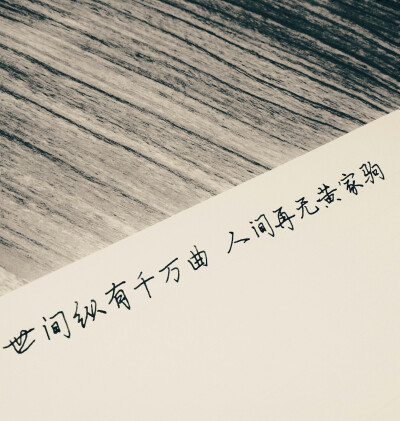 世间纵有千万曲 人间再无黄家驹